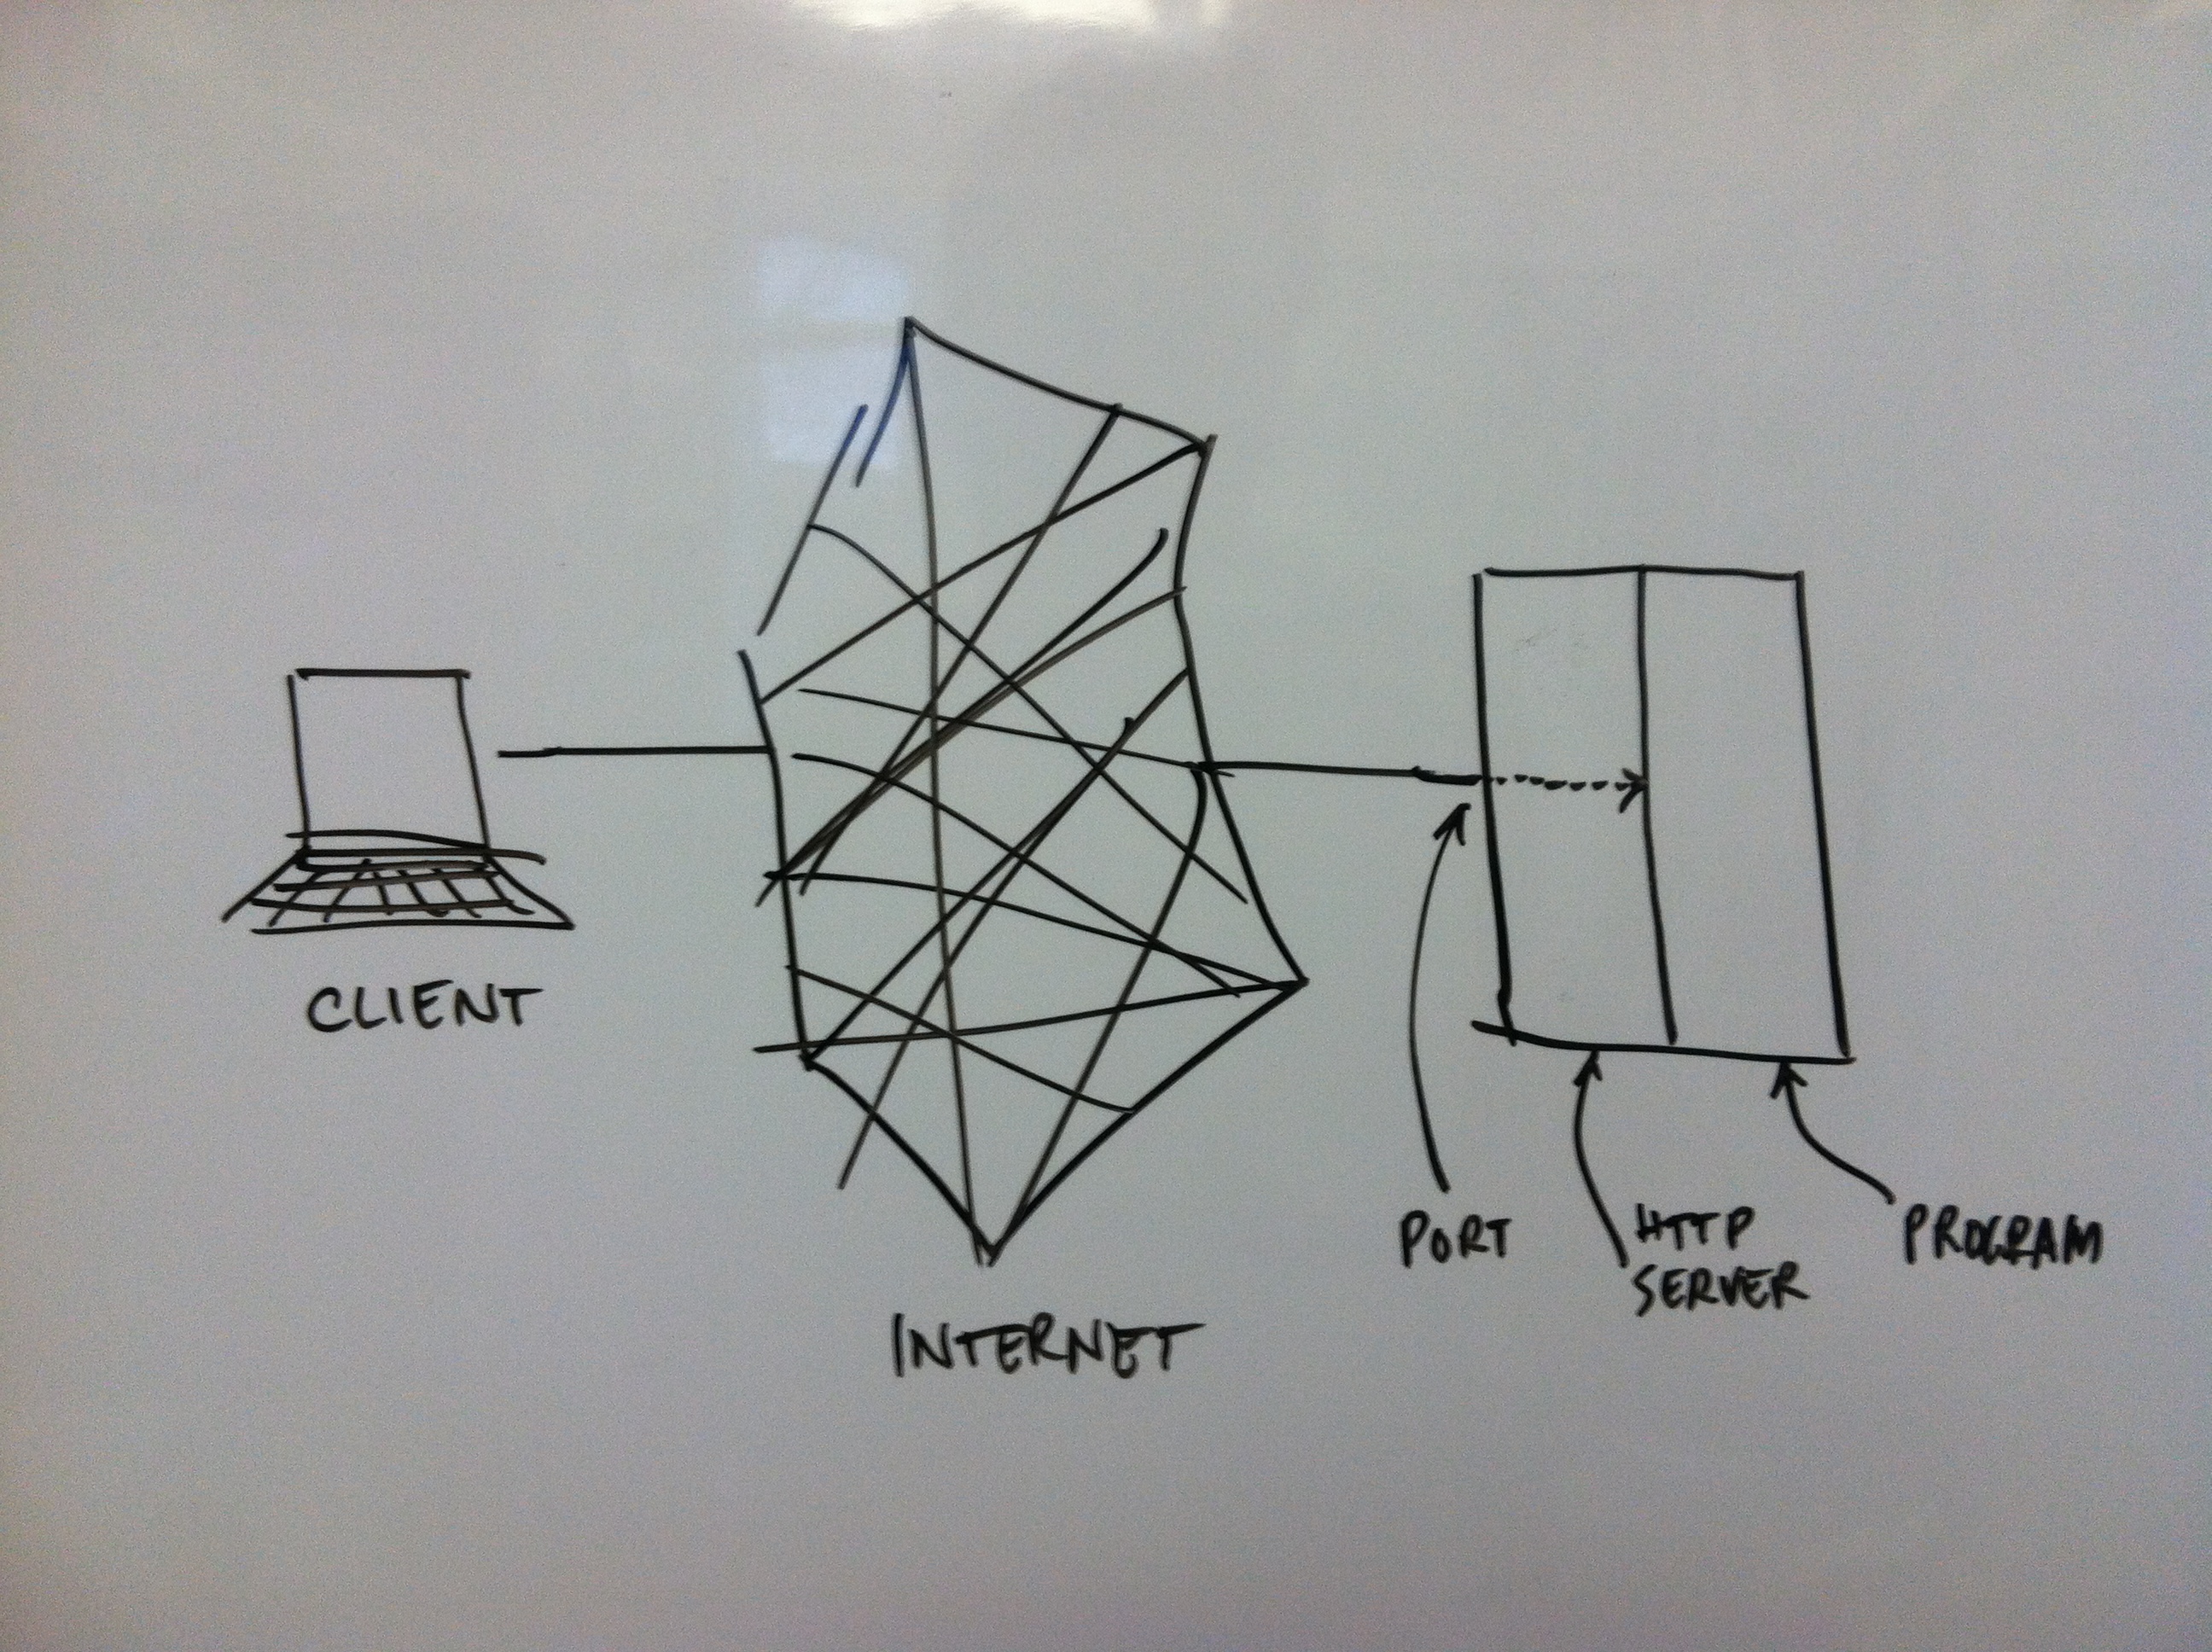 CLIENT
INTERNET
PORT
HTTP
SERVER
PROGRAM